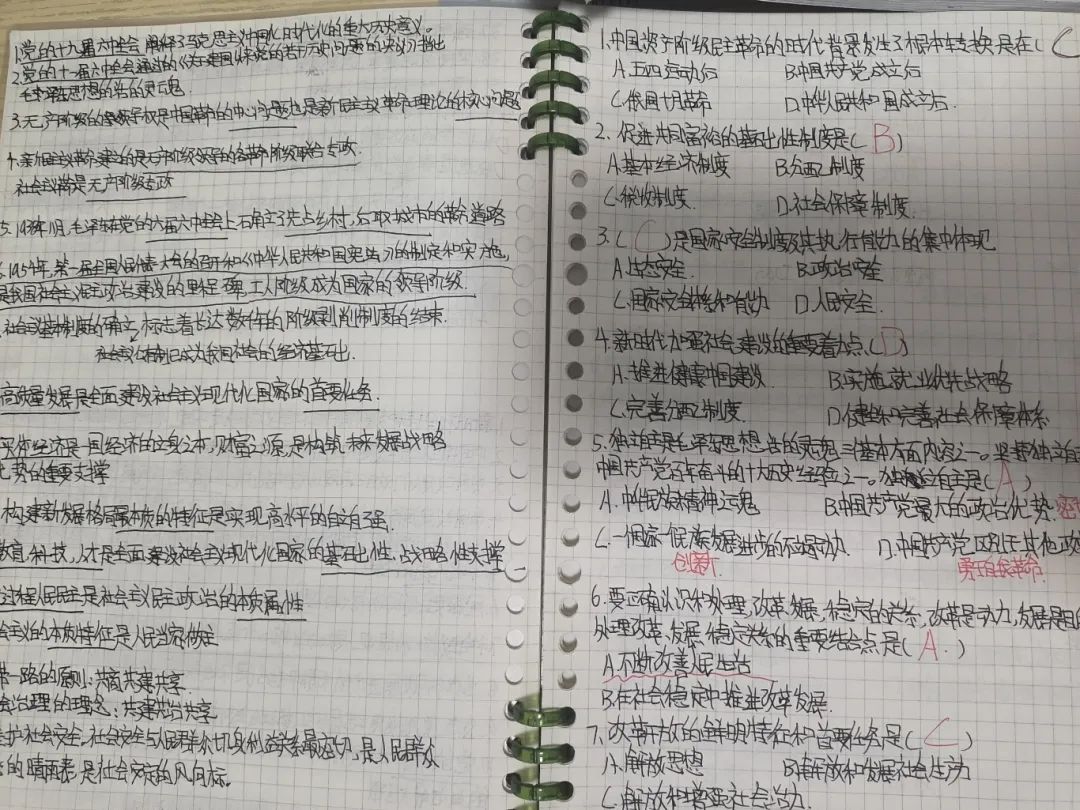 1.党的十九届六中全会阐释了马克思主义中国化时代化的重大历史意义。
2.党的十一届六中全会通过的《关于建国以来党的若干历史问题的决议》指出
毛泽东思想的活的灵魂
3.无产阶级的领导权是中国革命的中心问题也是新民主主义革命理论的核心问题
4.新民主主义革命建立的是无产阶级领导的各革命阶级联合专政
社会主义革命是无产阶级专政
5.1938年11月,毛泽东在党的六届六中全会上石角立了先占乡村,后取城市的革命道路
1954年,第一届全国人民代表大会的召开和《中华人民共和国宪法》的制定和实施,
是我国社会主义民主政治建设的里程碑,工人阶级成为国家的领导阶级.
社会主义基本制度的确立,标志着长达数千年的阶级剥削制度的结束.
社会主义公有制已成为我国社会的经济基础.
高质量发展是全面建设社会主义现代化国家的首要任务.
实体经济是一国经济的立身之本,财富之源,是构筑未来发展战略
势的重要支撑
构建新发展格局最本质的特征是实现高水平的自立自强.
教育,科技,人才是全面建设社会主义现代化国家的基础性,战略性支撑
过程人民民主是社会主义民主政治的本质属性
会主义的本质特征是人民当家做主
带一路的原则:共商共建共享.
会治理的理念:共建共治共享
护社会安全,社会安全与人民群众切身利益关系最密切,是人民群众
的晴雨表,是社会安定的风向标.
1.中国资产阶级民主革命的时代背景发生了根本转换是在( C
A.五四运动后 B.中国共产党成立后
C.俄国十月革命 D.中华人民共和国成立后.
2.促进共同富裕的基础性制度是( B )
A.基本经济制度 B.分配制度
C.税收制度. D.社会保障制度.
3.( C )是国家安全制度及其执行能力的集中体现
A.生态安全. B.政治安全
C.国家安全体系和能力 D.人民安全.
4.新时代加强社会建设的重要着力点.( D )
A.推进健康中国建设. B.实施就业优先战略
C.完善分配制度. D.健全和完善社会保障体系
5.独立自主是毛泽东思想活的灵魂三个基本方面内容之一。坚持独立自
中国共产党百年奋斗的十大历史经验之一。独立自主是( A )
A.中华民族精神之魂 B.中国共产党最大的政治优势.密
C.一个国家一个民族发展进步的不竭动力. D.中国共产党区别于其他政
创新. 勇于自我革命.
6.要正确认识和处理,改革,发展,稳定的关系,改革是动力,发展是目
处理改革、发展、稳定关系的重要结合点是( A. )
A.不断改善人民生活
B.在社会稳定中推进改革发展.
7.改革开放的鲜明特征和首要任务是( C )
A.解放思想 B.解放和发展社会生产力
C.解放和增强社会活力.